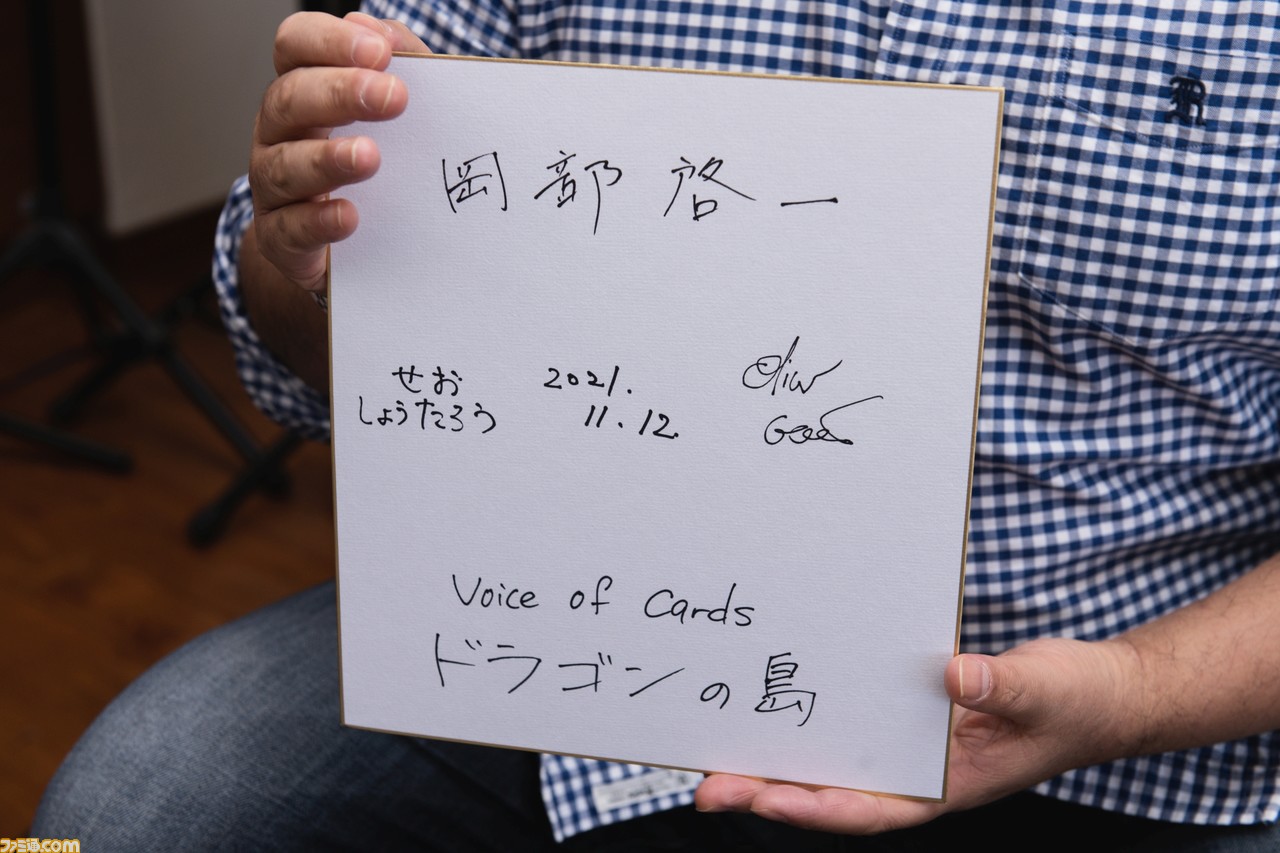 岡部 啓一
せお
しょうたろう
2021.
11.12
Oliver
Good
Voice of Cards
ドラゴンの島
R
ファミ通.com